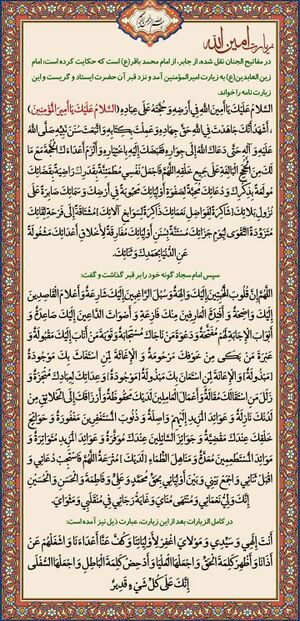 بسم الله الرحمن الرحیم
زیارت امین الله
در مفاتیح الجنان نقل شده، از جابر، از امام محمد باقر(ع) است که حکایت کرده است: امام
زین العابدین(ع) به زیارت امیرالمؤمنین آمد و نزد قبر آن حضرت ایستاد و گریست و این
زیارت نامه را خواند.
السَّلامُ عَلَيْكَ يَا أَمِينَ اللَّهِ فِي أَرْضِهِ وَ حُجَّتَهُ عَلَى عِبَادِهِ (السَّلامُ عَلَيْكَ يَا أَمِيرَ الْمُؤْمِنِينَ)
، أَشْهَدُ أَنَّكَ جَاهَدْتَ فِي اللَّهِ حَقَّ جِهَادِهِ وَ عَمِلْتَ بِكِتَابِهِ وَ اتَّبَعْتَ سُنَنَ نَبِيِّهِ صَلَّى اللَّهُ
عَلَيْهِ وَ آلِهِ حَتَّى دَعَاكَ اللَّهُ إِلَى جِوَارِهِ فَقَبَضَكَ إِلَيْهِ بِاخْتِيَارِهِ وَ أَلْزَمَ أَعْدَاءَكَ الْحُجَّةَ مَعَ مَا
لَكَ مِنَ الْحُجَجِ الْبَالِغَةِ عَلَى جَمِيعِ خَلْقِهِ اللَّهُمَّ فَاجْعَلْ نَفْسِي مُطْمَئِنَّةً بِقَدَرِكَ رَاضِيَةً بِقَضَائِكَ
مُولَعَةً بِذِكْرِكَ وَ دُعَائِكَ مُحِبَّةً لِصَفْوَةِ أَوْلِيَائِكَ مَحْبُوبَةً فِي أَرْضِكَ وَ سَمَائِكَ صَابِرَةً عَلَى
نُزُولِ بَلائِكَ [شَاكِرَةً لِفَوَاضِلِ نَعْمَائِكَ ذَاكِرَةً لِسَوَابِغِ آلائِكَ] مُشْتَاقَةً إِلَى فَرْحَةِ لِقَائِكَ
مُتَزَوِّدَةً التَّقْوَى لِيَوْمِ جَزَائِكَ مُسْتَنَّةً بِسُنَنِ أَوْلِيَائِكَ مُفَارِقَةً لِأَخْلاقِ أَعْدَائِكَ مَشْغُولَةً
عَنِ الدُّنْيَا بِحَمْدِكَ وَ ثَنَائِكَ.
سپس امام سجاد گونه خود را بر قبر گذاشت و گفت:
اللَّهُمَّ إِنَّ قُلُوبَ الْمُخْبِتِينَ إِلَيْكَ وَالِهَةٌ وَ سُبُلَ الرَّاغِبِينَ إِلَيْكَ شَارِعَةٌ وَ أَعْلامَ الْقَاصِدِينَ
إِلَيْكَ وَاضِحَةٌ وَ أَفْئِدَةَ الْعَارِفِينَ مِنْكَ فَازِعَةٌ وَ أَصْوَاتَ الدَّاعِينَ إِلَيْكَ صَاعِدَةٌ وَ
أَبْوَابَ الْإِجَابَةِ لَهُمْ مُفَتَّحَةٌ وَ دَعْوَةَ مَنْ نَاجَاكَ مُسْتَجَابَةٌ وَ تَوْبَةَ مَنْ أَنَابَ إِلَيْكَ مَقْبُولَةٌ وَ
عَبْرَةَ مَنْ بَكَى مِنْ خَوْفِكَ مَرْحُومَةٌ وَ الْإِغَاثَةَ لِمَنِ اسْتَغَاثَ بِكَ مَوْجُودَةٌ
[مَبْذُولَةٌ] وَ الْإِعَانَةَ لِمَنِ اسْتَعَانَ بِكَ مَبْذُولَةٌ [مَوْجُودَةٌ] وَ عِدَاتِكَ لِعِبَادِكَ مُنْجَزَةٌ وَ
زَلَلَ مَنِ اسْتَقَالَكَ مُقَالَةٌ وَ أَعْمَالَ الْعَامِلِينَ لَدَيْكَ مَحْفُوظَةٌ وَ أَرْزَاقَكَ إِلَى الْخَلائِقِ مِنْ
لَدُنْكَ نَازِلَةٌ وَ عَوَائِدَ الْمَزِيدِ إِلَيْهِمْ وَاصِلَةٌ وَ ذُنُوبَ الْمُسْتَغْفِرِينَ مَغْفُورَةٌ وَ حَوَائِجَ
خَلْقِكَ عِنْدَكَ مَقْضِيَّةٌ وَ جَوَائِزَ السَّائِلِينَ عِنْدَكَ مُوَفَّرَةٌ وَ عَوَائِدَ الْمَزِيدِ مُتَوَاتِرَةٌ وَ
مَوَائِدَ الْمُسْتَطْعِمِينَ مُعَدَّةٌ وَ مَنَاهِلَ الظِّمَاءِ [لَدَيْكَ] مُتْرَعَةٌ اللَّهُمَّ فَاسْتَجِبْ دُعَائِي وَ
اقْبَلْ ثَنَائِي وَ اجْمَعْ بَيْنِي وَ بَيْنَ أَوْلِيَائِي بِحَقِّ مُحَمَّدٍ وَ عَلِيٍّ وَ فَاطِمَةَ وَ الْحَسَنِ وَ الْحُسَيْنِ
إِنَّكَ وَلِيُّ نَعْمَائِي وَ مُنْتَهَى مُنَايَ وَ غَايَةُ رَجَائِي فِي مُنْقَلَبِي وَ مَثْوَايَ.
در کامل الزیارات بعد از این زیارت، عبارت ذیل نیز آمده است:
أَنْتَ إِلَهِي وَ سَيِّدِي وَ مَوْلايَ اغْفِرْ لِأَوْلِيَائِنَا وَ كُفَّ عَنَّا أَعْدَاءَنَا وَ اشْغَلْهُمْ عَنْ
أَذَانَا وَ أَظْهِرْ كَلِمَةَ الْحَقِّ وَ اجْعَلْهَا الْعُلْيَا وَ أَدْحِضْ كَلِمَةَ الْبَاطِلِ وَ اجْعَلْهَا السُّفْلَى
إِنَّكَ عَلَى كُلِّ شَيْءٍ قَدِيرٌ